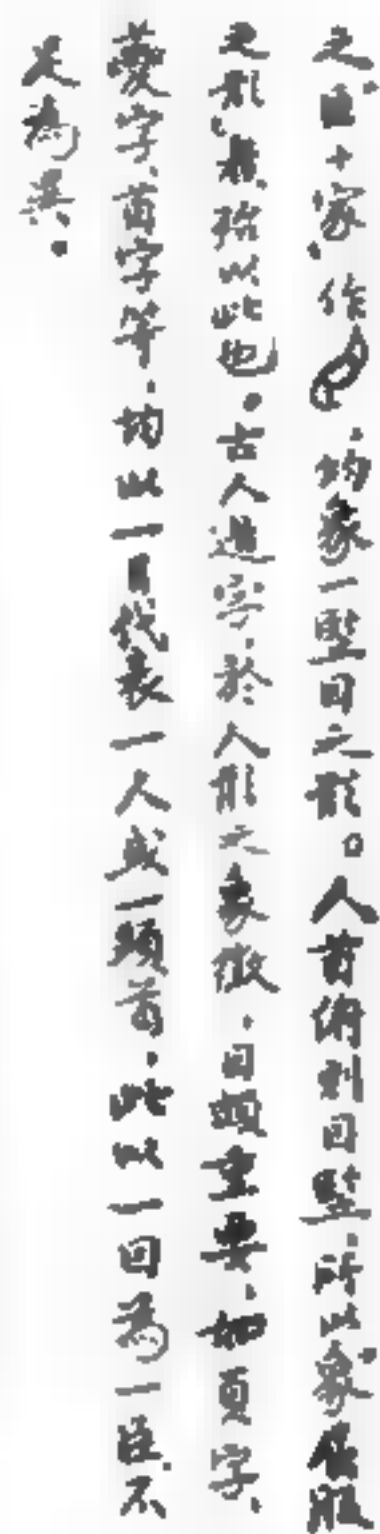 之臣十家作，均象一豎目之形。人首俯則目豎，所以象屈服
之形者，殆以此也。古人造字，於人形之象徵，目頗重要，如頁字、
夔字、首字等，均以一目代表一人或一頭首，此以一目為一臣，不
足為異。